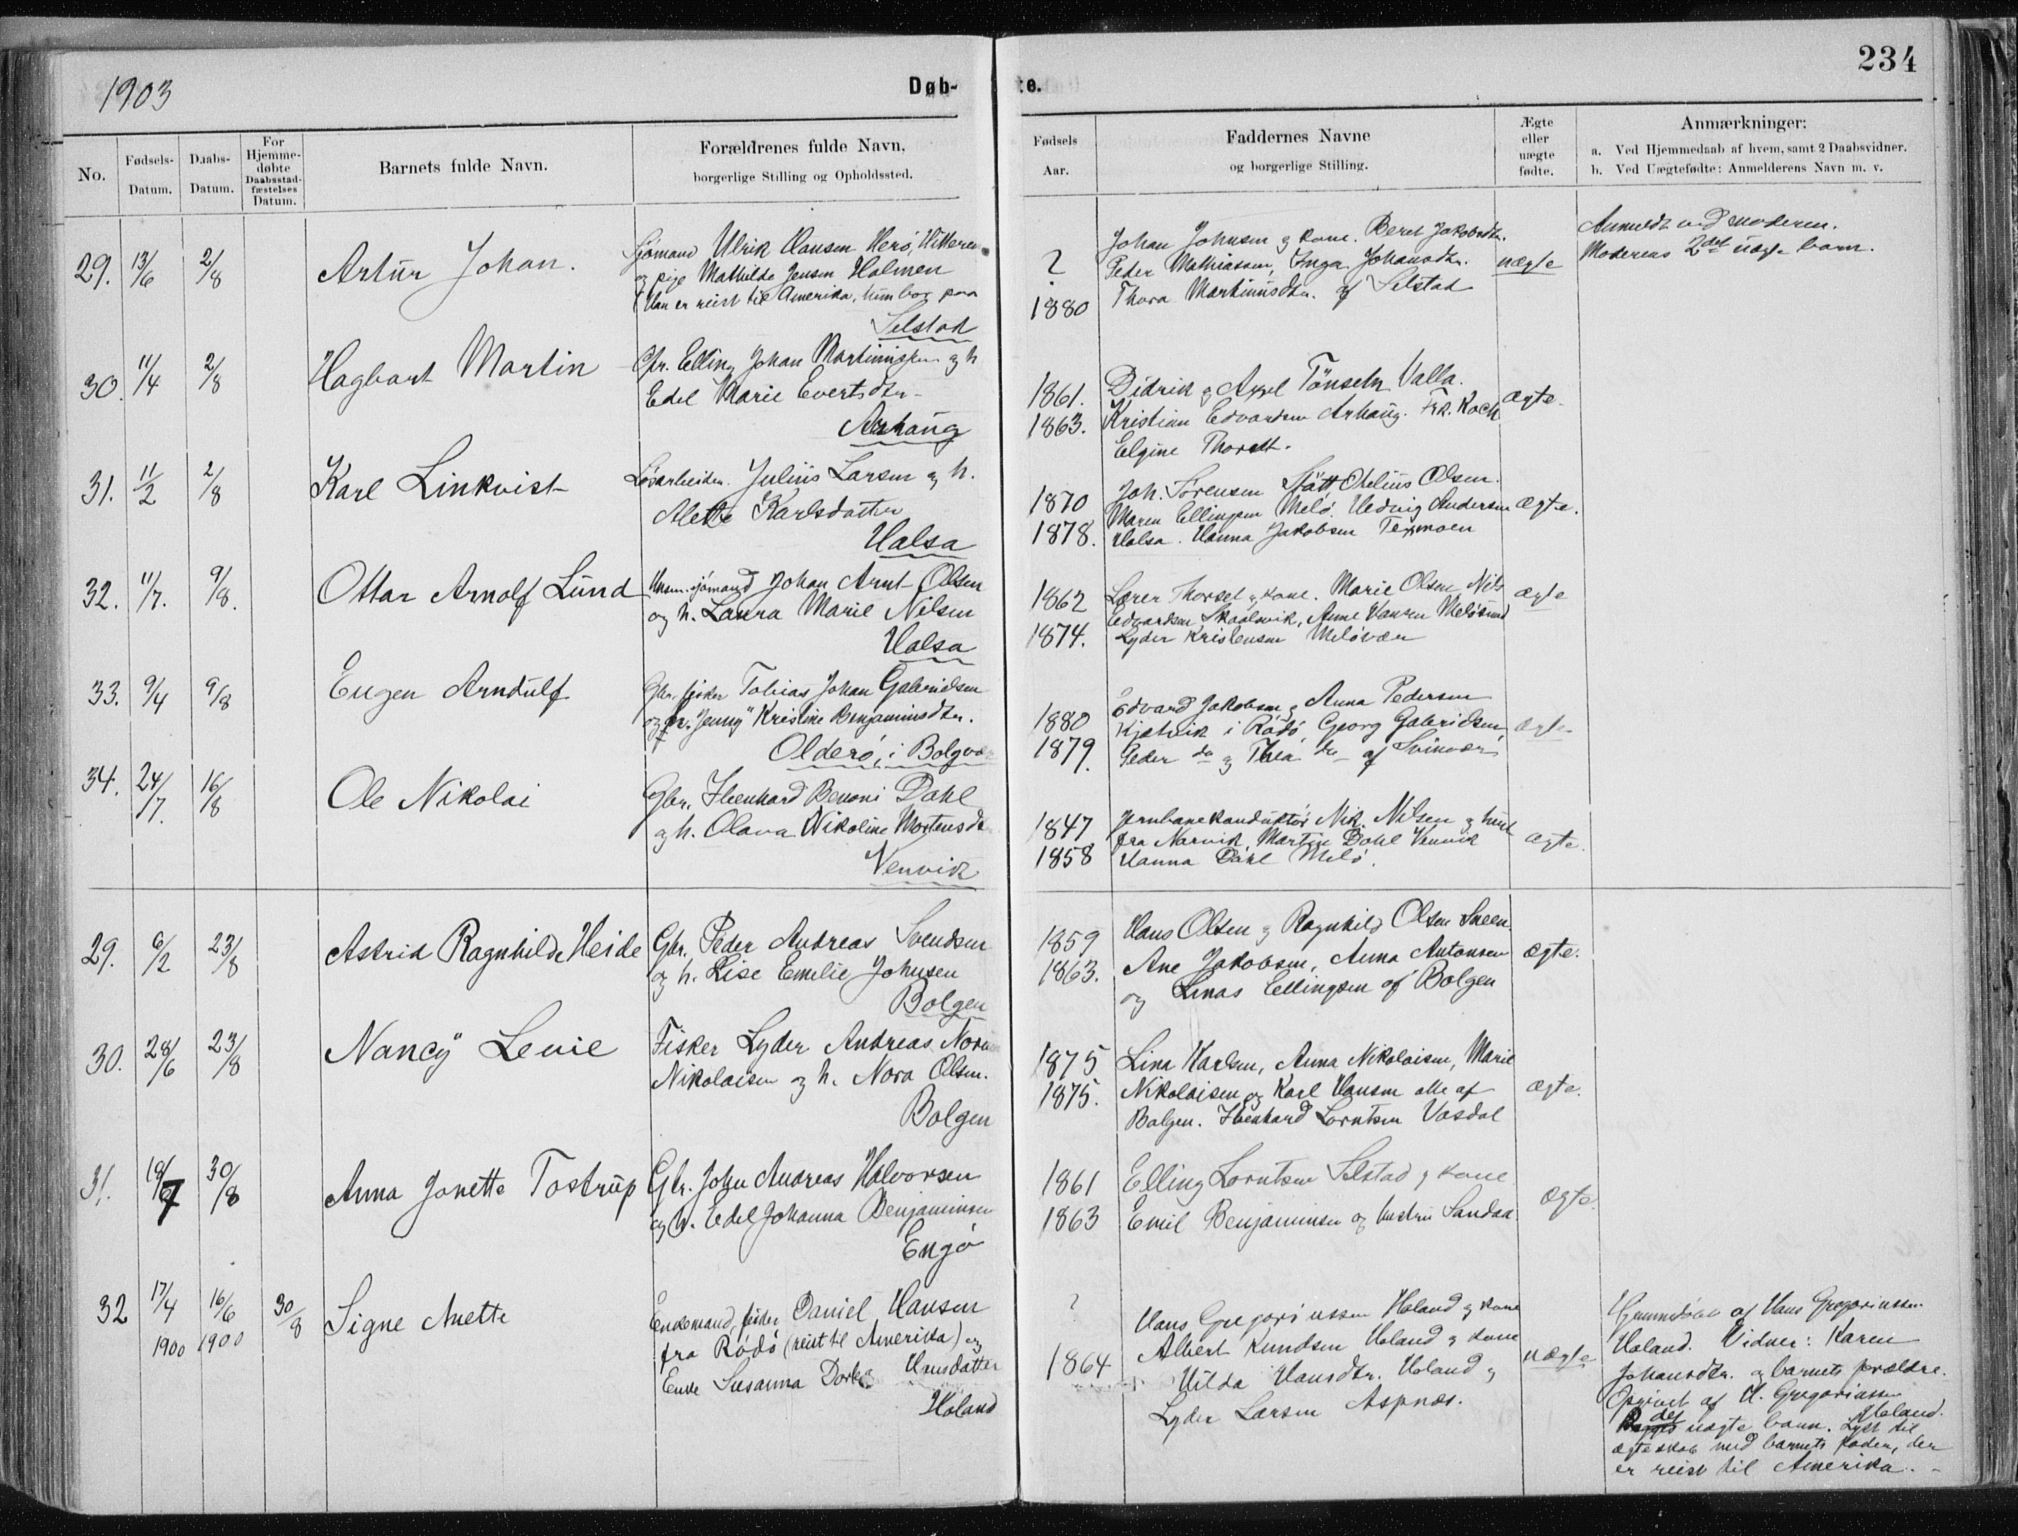 1903
Døb-
te.
234
No.
Fødsels-
Datum.
Daabs-
Datum.
For
Hjemme-
døbte
Daabsstad-
fæstelses
Datum.
Barnets fulde Navn.
Forældrenes fulde Navn,
borgerlige Stilling og Opholdssted.
Fødsels
Aar.
Faddernes Navne
og borgerlige Stilling.
Ægte
eller
uægte
fødte.
Anmærkninger:
a. Ved Hjemmedaab af hvem, samt 2 Daabsvidner.
b. Ved Uægtefødte: Anmelderens Navn m. v.
29. 13/6 2/8 Artur Johan.
Sjömand Ulrik Hansen Herö, Hitteren
og pige Mathilde Jensen Holmen
(Han er reist til Amerika, hun bor paa
Selstad
?
1880
Johan Johnsen og kone. Beret Jakobsdtr.
Peder Mathiassen, Inga Johansdtr.
Thora Martinusdtr. af Selstad
uægte
Anmeldt ved moderen.
Moderens 2det uægte barn.
30. 11/4 2/8 Hagbart Martin
Gbr. Elling Johan Martinussen og h
Edel Marie Evertsdtr.
Arhaug
1861.
1863.
Didrik og Axel Tönseth Valla.
Kristian Edvardsen Arhaug. Frk. Koch
Elgine Thorset.
ægte.
31. 11/2 2/8 Karl Linkvist
Lösarbeider. Julius Larsen og h.
Alette Karlsdatter
Halsa
1870
1878.
Joh. Sörensen Stött Otelius Olsen.
Maren Ellingsen Melö. Hedvig Andersen
Halsa. Hanna Jakobsen Texmoen
ægte.
32. 11/7. 9/8. Ottar Arnolf Lund
Husm. sjömand Johan Arnt Olsen
og h. Laura Marie Nilsen
Halsa
1862
1874.
Lærer Thorset og kone. Marie Olsen, Nils
Edvardsen Skaalsvik, Anne Hansen Melösund
Lyder Kristensen Melövær
ægte
33. 9/4 9/8 Eugen Arndulf
Gbr. fisker Tobias Johan Gabrielsen
og h. Jenny Kristine Benjaminsdtr.
Olderö, i Bolgvær
1880
1879.
Edvard Jakobsen og Anna Pedersen
Kjelvik i Rödö, Georg Gabrielsen,
Peder do og Thea do af Svinvær
ægte
34. 24/7. 16/8 Ole Nikolai
Gbr. Ilbenhard Benoni Dahl
og h. Olava Nikoline Mortensdtr
Venvik
1847
1858
Jernbanekonduktör Nik. Nilsen og hust
fra Narvik, Martin Dahl Venvik
Hanna Dahl Melö.
ægte.
29. 6/2 23/8 Astrid Ragnhilde Heide
Gbr. Peder Andreas Svendsen
og h. Lise Emelie Johnsen
Bolgen
1859
1863.
Hans Olsen og Ragnhild Olsen Sneen
Ane Jakobsen, Anna Antonsen
og Linas Ellingsen af Bolgen
ægte.
30. 28/6 23/8 Nancy Levie
Fisker Lyder Andreas
Nikolaisen og h. Nora Olsen.
Bolgen
1875
1875.
Lina Karlsen, Anna Nikolaisen, Marie
Nikolaisen og Karl Hansen alle af
Bolgen. Ilbenhard Lorntsen Vasdal
ægte.
31. 19/7 30/8 Anna Jonette Tostrup
Gbr. John Andreas Halvorsen
og h. Edel Johanna Benjaminsen
Engö
1861
1863
Elling Lorntsen Selstad og kone
Emil Benjaminsen og hustru Sandaa
ægte.
32 17/4 1900 16/6 1900 30/8 Signe Anette
Enkemand, fisker Daniel Hansen
fra Rödö (reist til Amerika) og
Enke Susanna Hansdatter
Holand
?
1864
Hans Gregoriussen Holand og kone
Albert Knudsen Holand og kone
Hilda Hansdtr. Holand og
Lyder Larsen Aspnæs.
uægte
Hjemmedöbt af Hans Gregoriussen
Holand. Vidner: Karen
Johansdtr. og barnets forældre.
Opgivet af H. Gregoriussen
Holand.
uægte barn. Lyst til
ægteskab med barnets fader, der
er reist til Amerika.